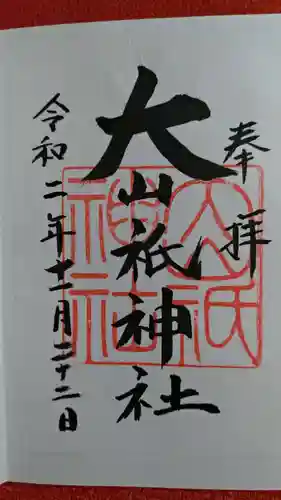 奉拝
大山祇神社
大山祇
神社
令和二年十一月二十二日